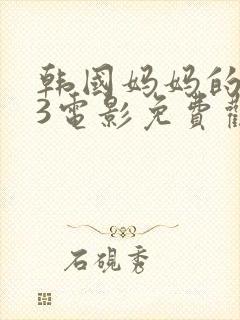 韩國妈妈的
3電影免費觀
石硯秀